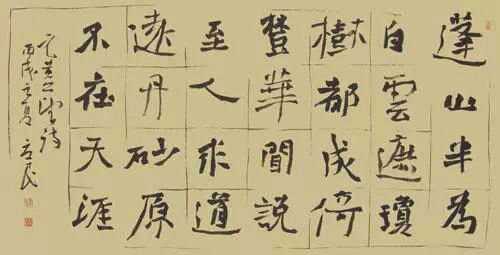 蓬山半為
白雲遮瓊
樹都成綺
樹華聞說
至人求道
遠丹砂原
不在天涯
元黃公望詩
丙戌之夏